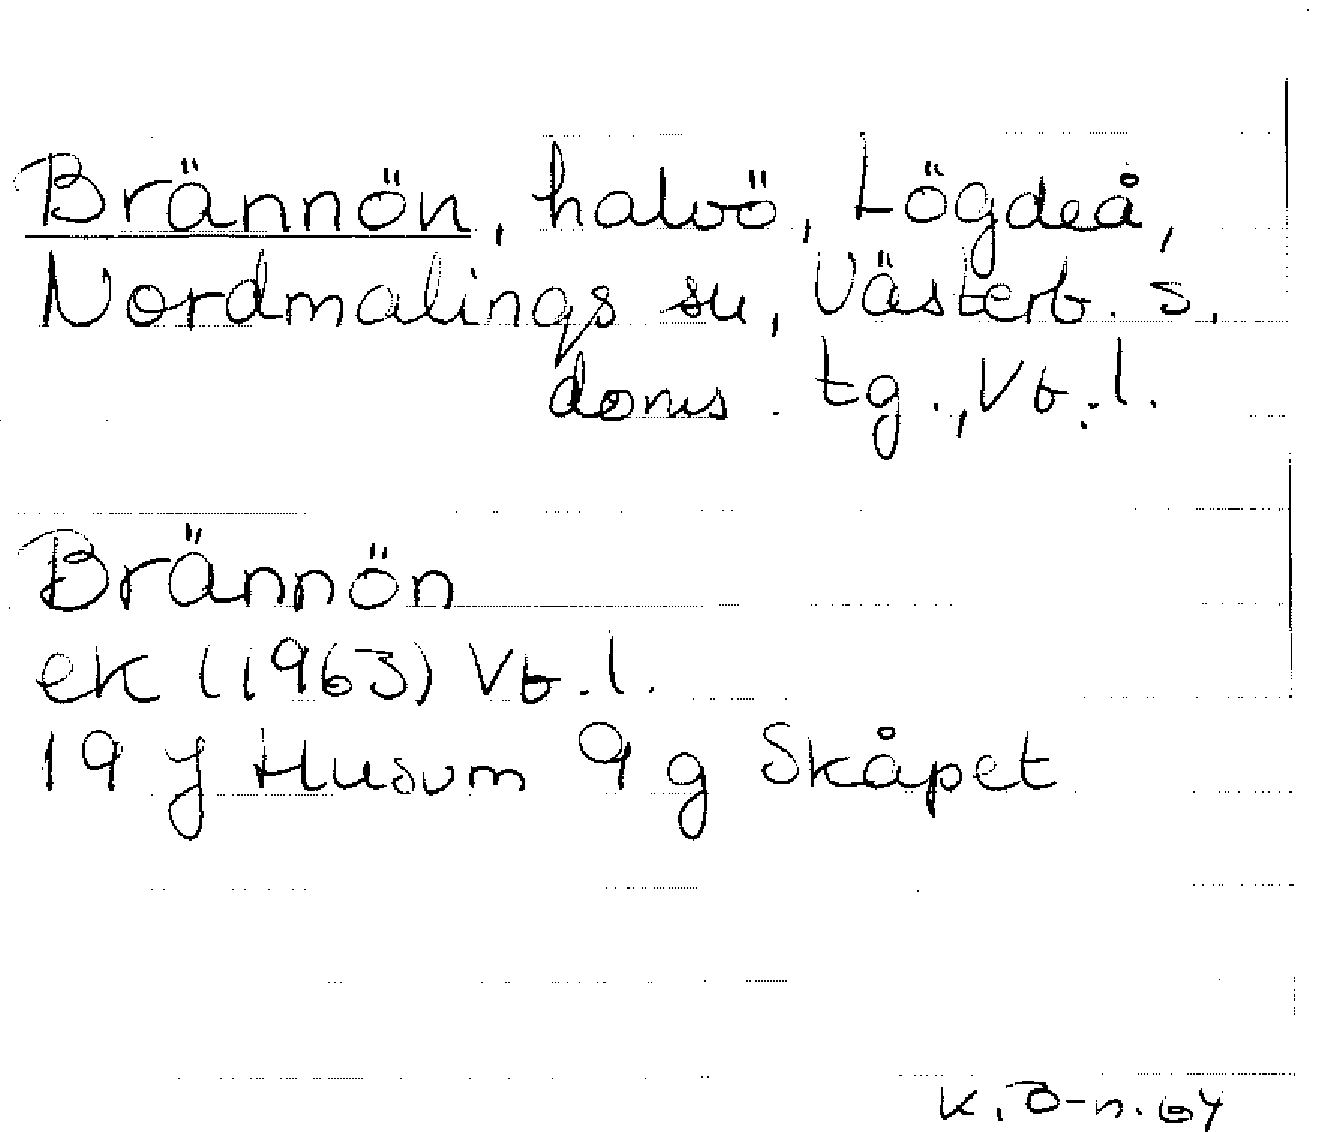 Brännön, halvö, Lögdeå,
Nordmalings sn, Västerb. s.
doms. tg., Vb. l.
Brännön
ek (1963) Vb. l.
19 J Husum 9 g Skåpet
K. B-n. 64